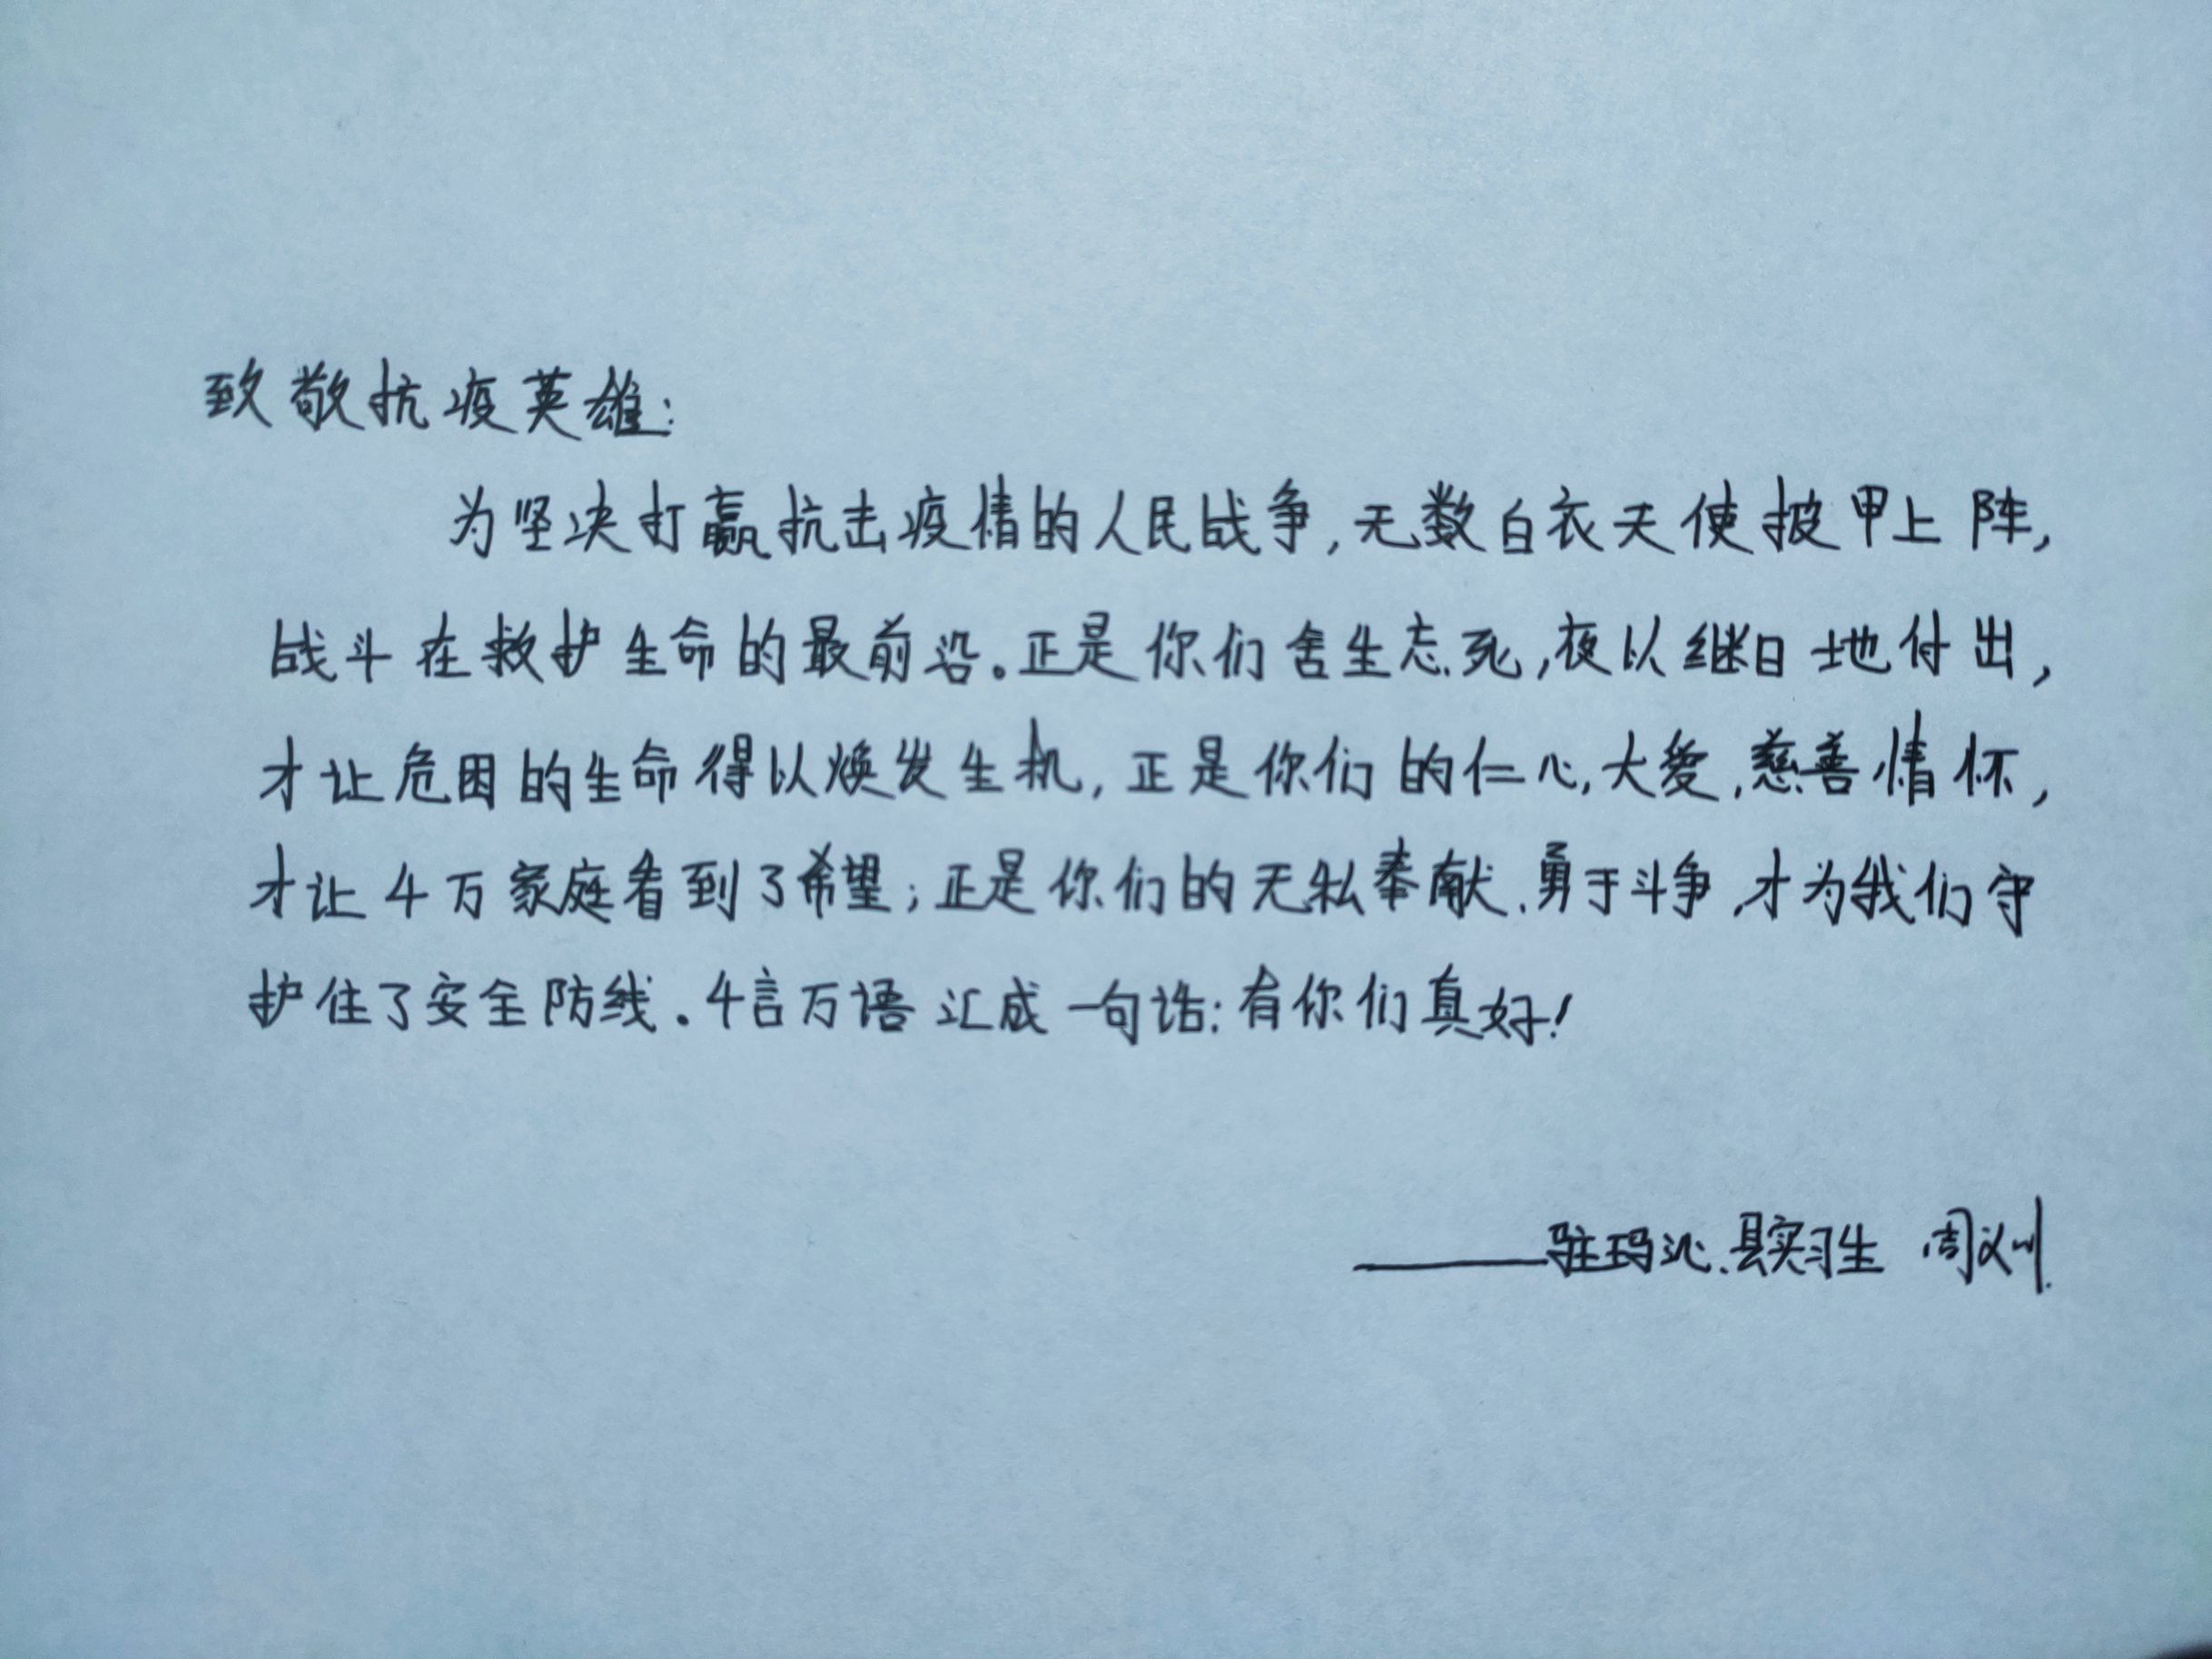 致敬抗疫英雄:
为坚决打赢抗击疫情的人民战争,无数白衣天使披甲上阵,
战斗在救护生命的最前沿。正是你们舍生忘死,夜以继日地付出,
才让危困的生命得以焕发生机,正是你们的仁心,大爱,慈善情怀,
才让千万家庭看到了希望;正是你们的无私奉献、勇于斗争,才为我们守
护住了安全防线.千言万语汇成一句话:有你们真好!
——驻玛沁县实习生 周义州